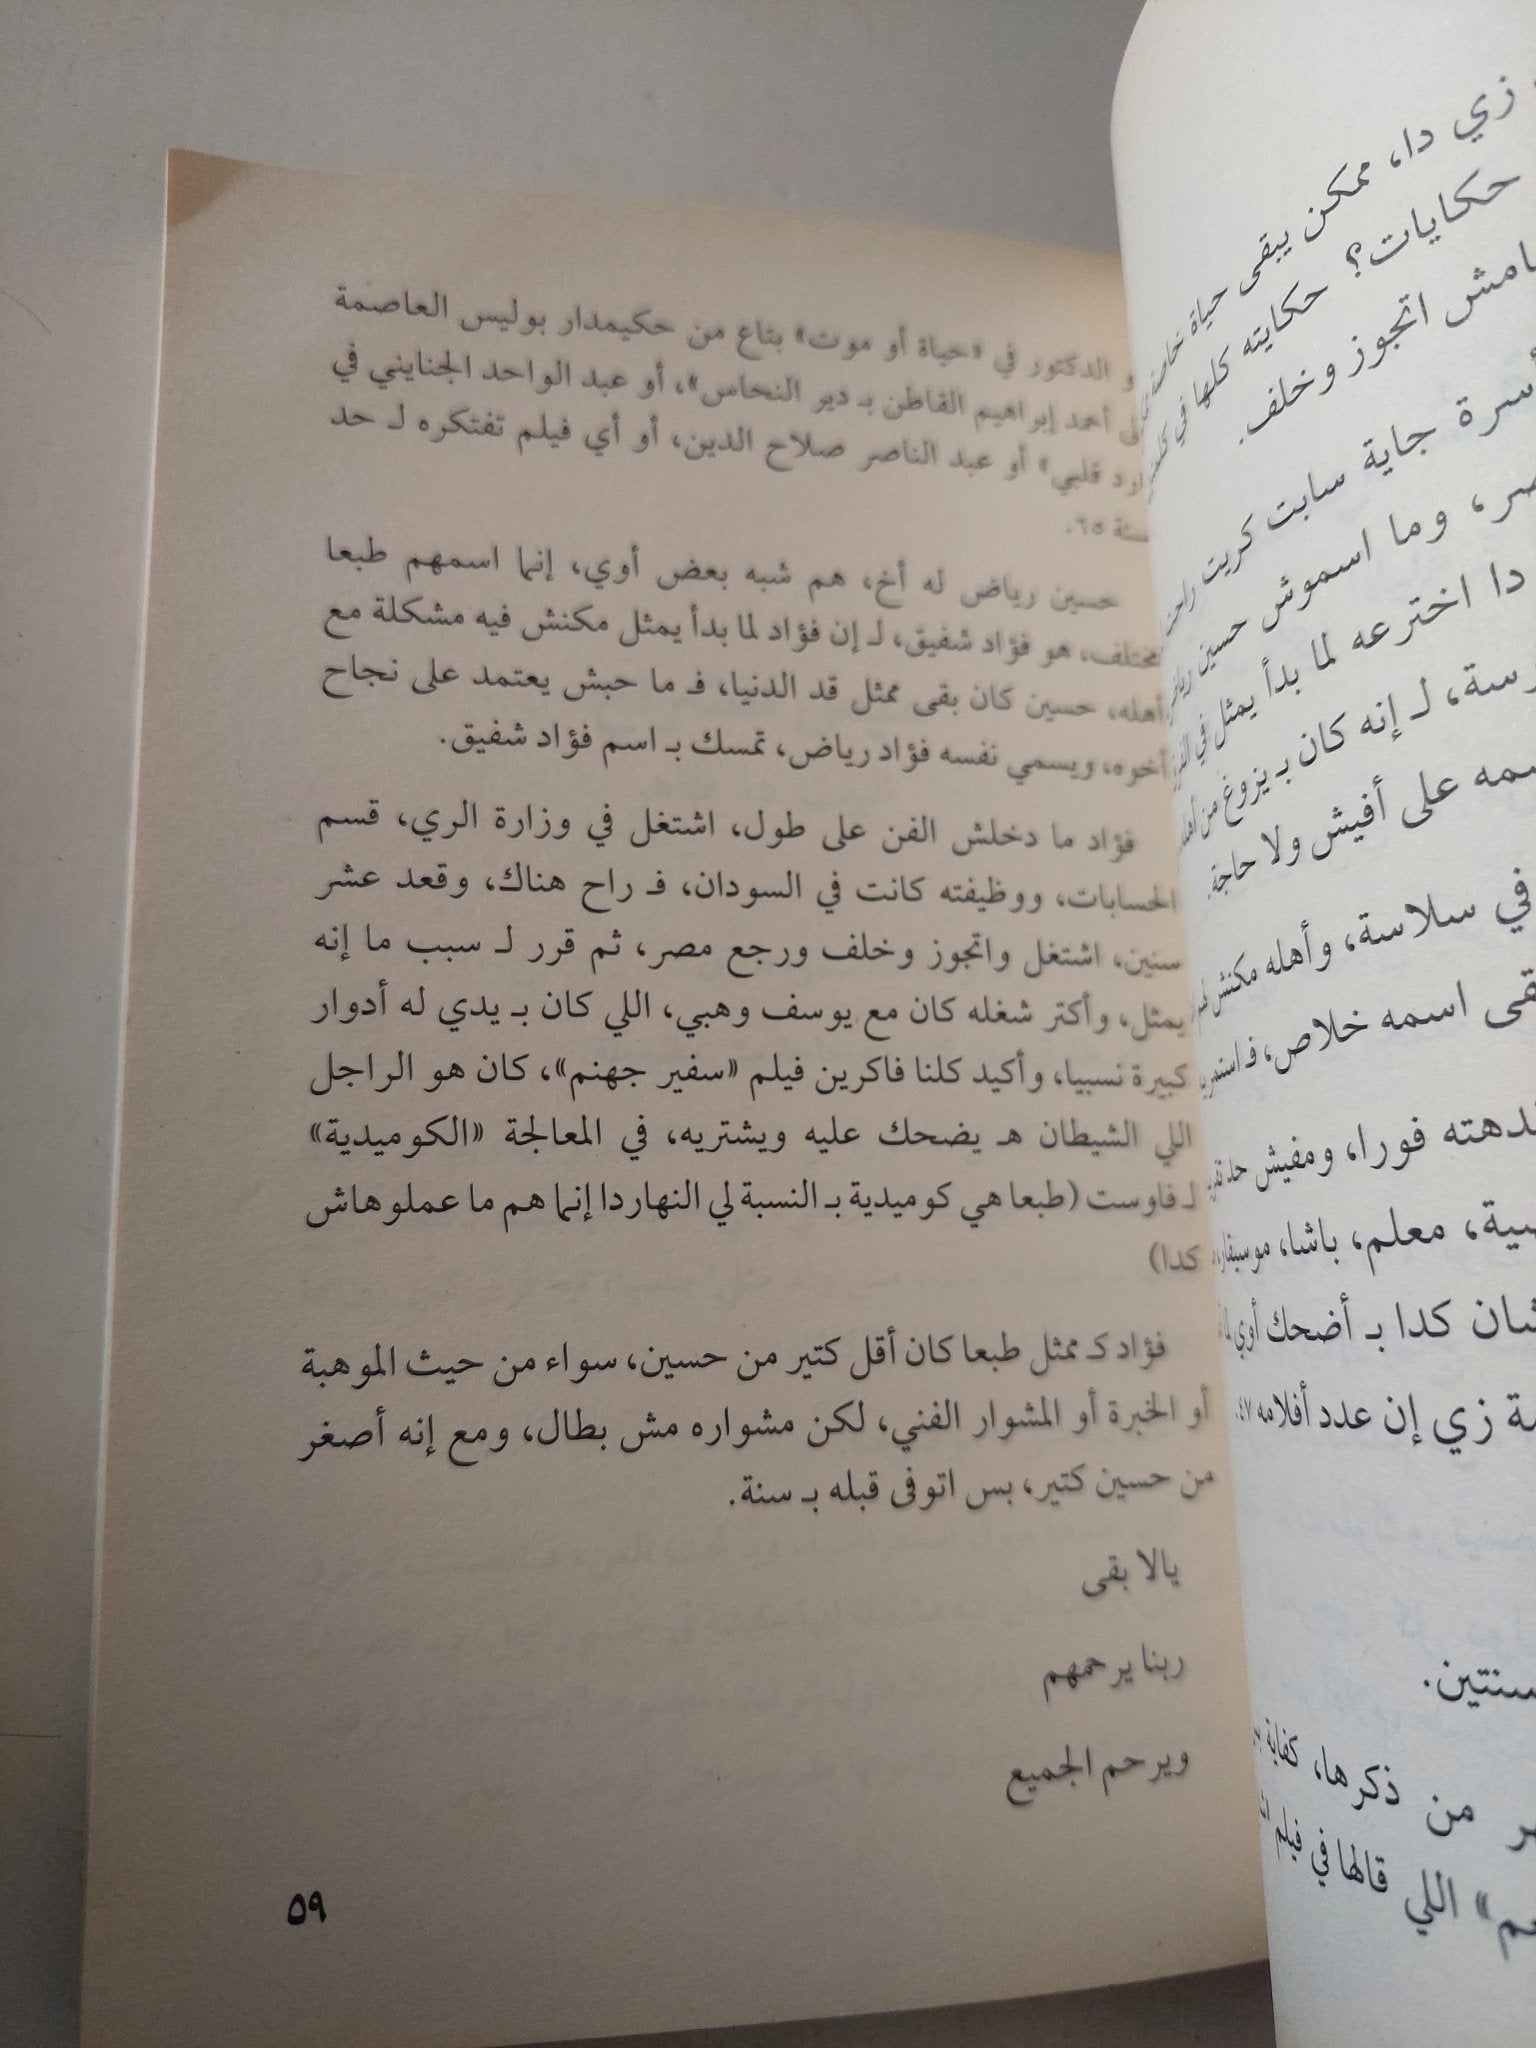 و الدكتور في «حياة أو موت» بتاع من حكيمدار بوليس العاصمة
إلى أحمد إبراهيم القاطن بـ دير النحاس»، أو عبد الواحد الجنايني في
قلبي» أو عبد الناصر صلاح الدين، أو أي فيلم تفتكره لـ حد
سنة ٦٥.
حسين رياض له أخ، هم شبه بعض أوي، إنما اسمهم طبعا
مختلف، هو فؤاد شفيق، لـ إن فؤاد لما بدأ يمثل مكنش فيه مشكلة مع
أهله، حسين كان بقى ممثل قد الدنيا، فـ ما حبش يعتمد على نجاح
أخوه، ويسمي نفسه فؤاد رياض، تمسك بـ اسم فؤاد شفيق.
فؤاد ما دخلش الفن على طول، اشتغل في وزارة الري، قسم
الحسابات، ووظيفته كانت في السودان، فـ راح هناك، وقعد عشر
سنين، اشتغل واتجوز وخلف ورجع مصر، ثم قرر لـ سبب ما إنه
يمثل، وأكتر شغله كان مع يوسف وهبي، اللي كان بـ يدي له أدوار
كبيرة نسبيا، وأكيد كلنا فاكرين فيلم «سفير جهنم»، كان هو الراجل
اللي الشيطان هـ يضحك عليه ويشتريه، في المعالجة «الكوميدية»
لـ فاوست (طبعا هي كوميدية بـ النسبة لي النهاردا إنما هم ما عملوهاش
كدا)
فؤاد كـ ممثل طبعا كان أقل كتير من حسين، سواء من حيث الموهبة
أو الخبرة أو المشوار الفني، لكن مشواره مش بطال، ومع إنه أصغر
من حسين كتير، بس اتوفى قبله بـ سنة.
يالا بقى
ربنا يرحمهم
ويرحم الجميع
٥٩
زي دا، ممكن يبقى حياة
حكايات؟ حكايته كلها في
اتجوز وخلف.
جاية سابت كريت
وما اسموش حسين رياض
دا اخترعه لما بدأ يمثل في
لـ إنه كان بـ يزوغ من
على أفيش ولا حاجة.
في سلاسة، وأهله مكنش
اسمه خلاص، فـ
فورا، ومفيش حد
معلم، باشا،
كدا بـ أضحك أوي
زي إن عدد أفلامه ٤٧.
سنتين.
من ذكرها، كفاية
اللي قالها في فيلم